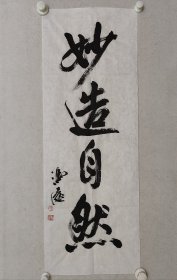 妙造自然